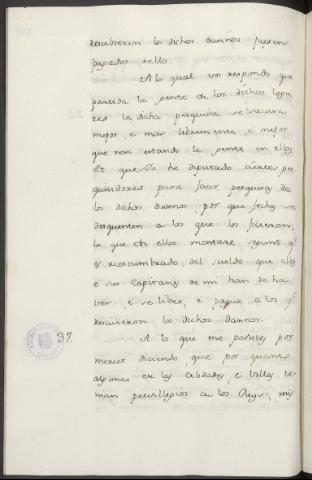 recibieren los dichos dannos fuesen
pagados dello
A lo qual vos respondo que
partida la gente de los dichos logares
la dicha pesquisa se sacara
mejor, e mas libremente, e mejor
que non estando la gente en ellos,
et que Yo he diputado ciertos pes
quisidores para facer pesquisa de
los dichos dannos, por que fechos se
desquenten a los que los ficieron
lo que en ellos montare, segunt q.e
es acostumbrado, del sueldo que ellos
e sus Capitanes de mi han de ha
ber, e se libre, e pague a los q.e
recibieron los dichos dannos.
37. A lo que me pedistes por
merced diciendo, que por quanto
algunas de las cibdades, e villas te
nian previllegios de los Reyes mis